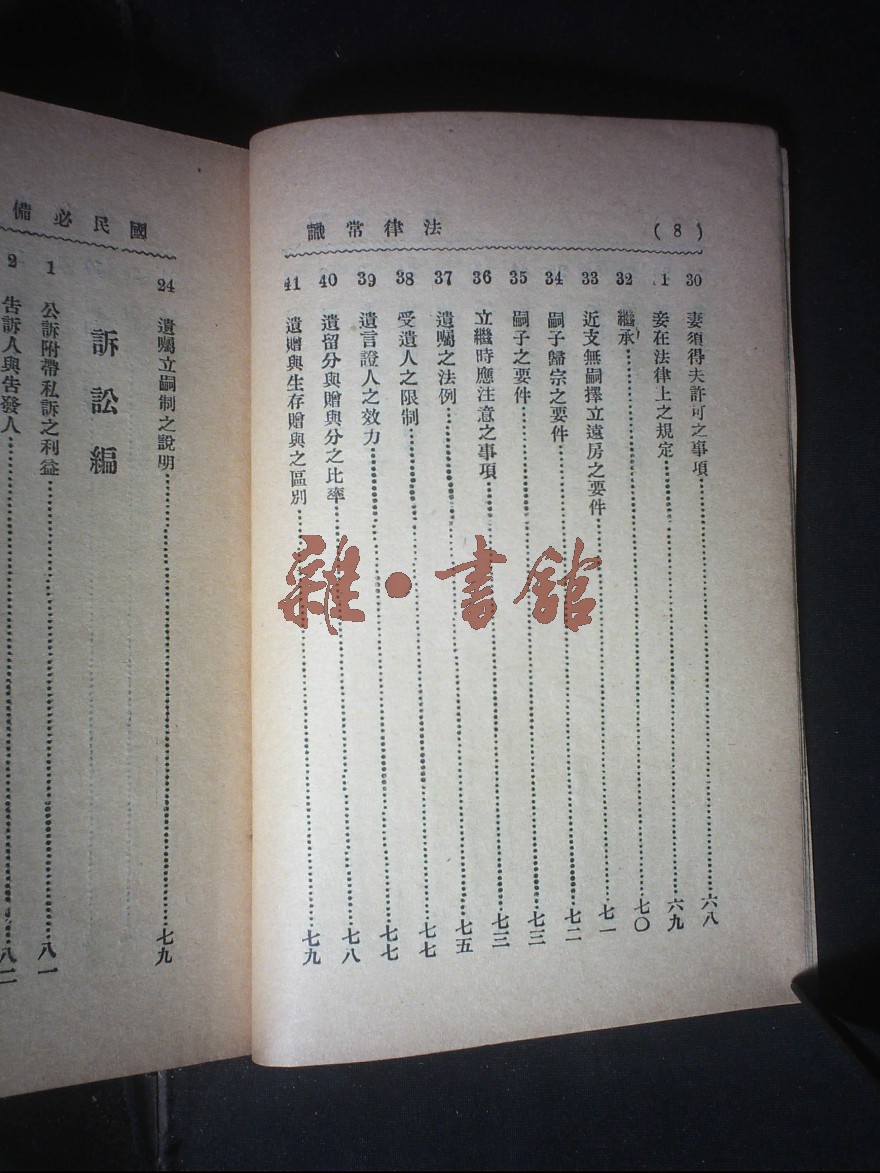 (8) 法律常識
30 妻須得夫許可之事項……六八
1 妾在法律上之規定……六九
32 繼承……七〇
33 近支無嗣擇立遠房之要件……七一
34 嗣子歸宗之要件……七二
35 嗣子之要件……七三
36 立繼時應注意之事項……七三
37 遺囑之法例……七五
38 受遺人之限制……七七
39 遺言證人之效力……七七
40 遺留分與贈與分之比率……七八
41 遺贈與生存贈與之區別……七九
國民必備
24 遺囑立嗣制之說明……七九
訴訟編
1 公訴附帶私訴之利益……八一
2 告訴人與告發人……八二
雜·書館